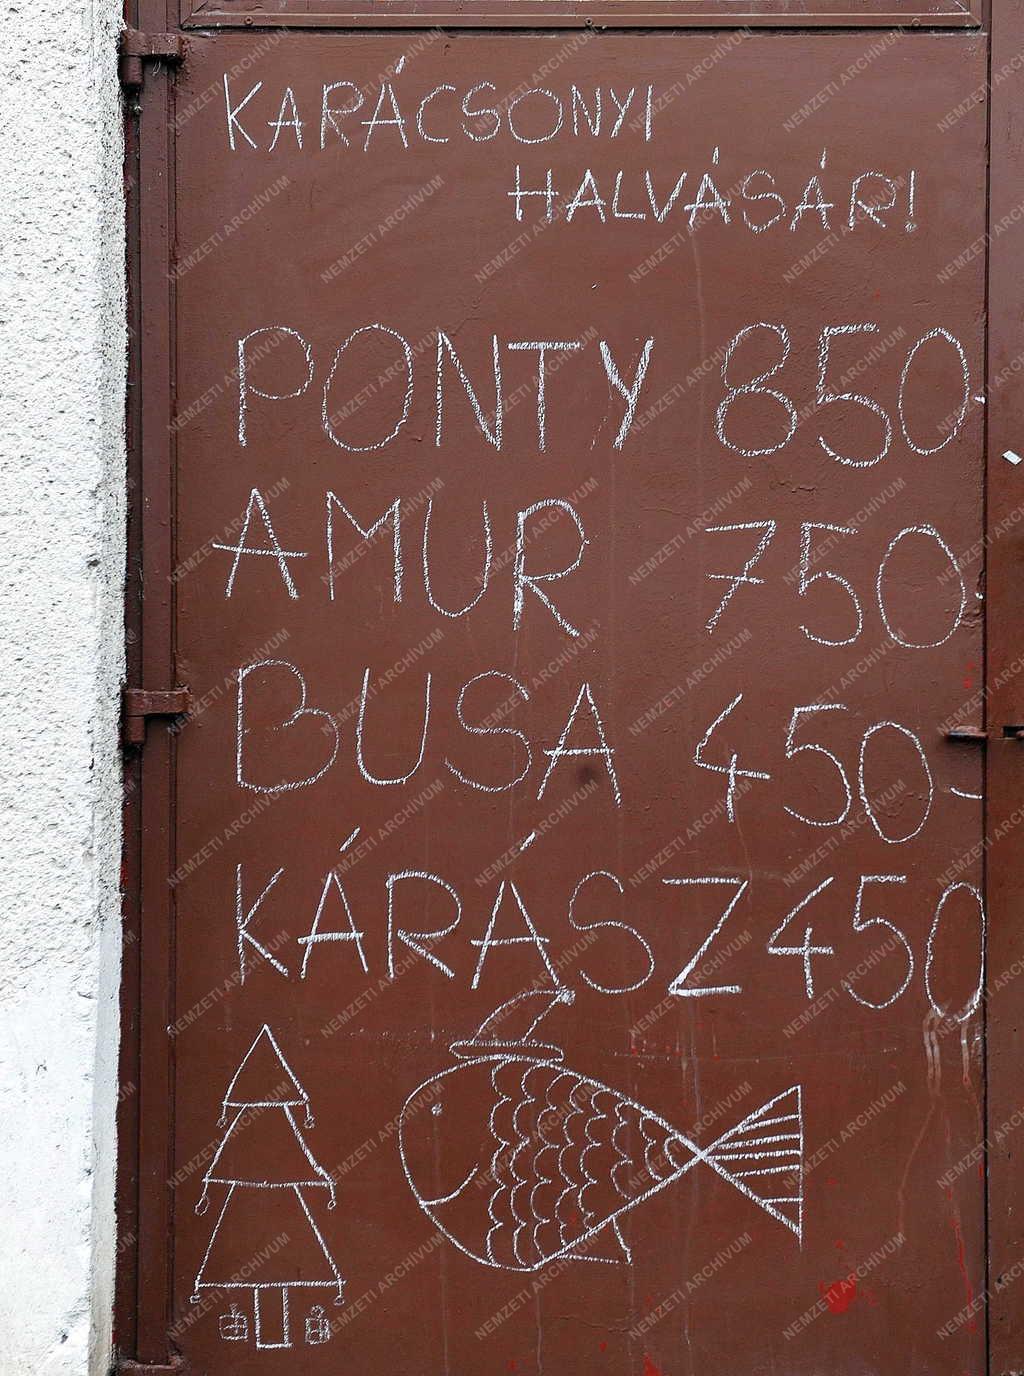 KARÁCSONYI
HALVÁSÁR!
PONTY 850-
AMUR 750-
BUSA 450-
KÁRÁSZ 450
NEMZETI ARCHÍVUM